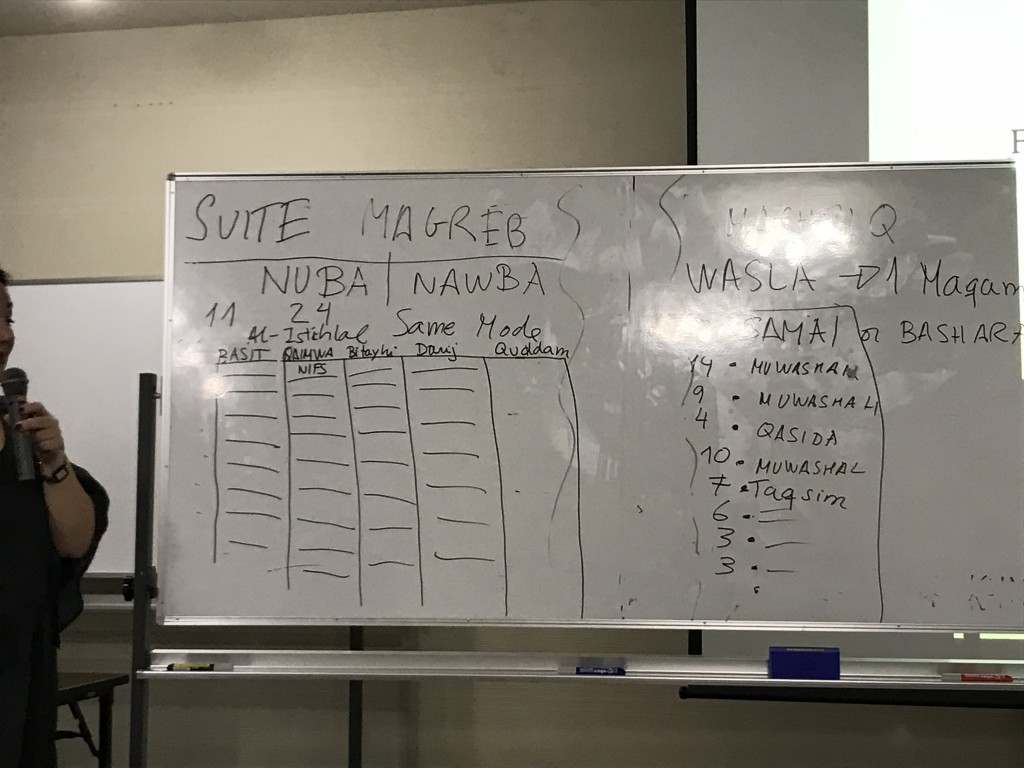 SUITE MAGREB
NUBA | NAWBA
11 24
Al-Istihlal Same Mode
BASIT QAIMWA Bitayhi Darij Quddam
NIFS
Q
WASLA → 1 Maqam
SAMAI or BASHARA
14 - MUWASHAH
9 • MUWASHAH
4 • QASIDA
10 • MUWASHAL
7 • Taqsim
6 •
3 •
3 •
F